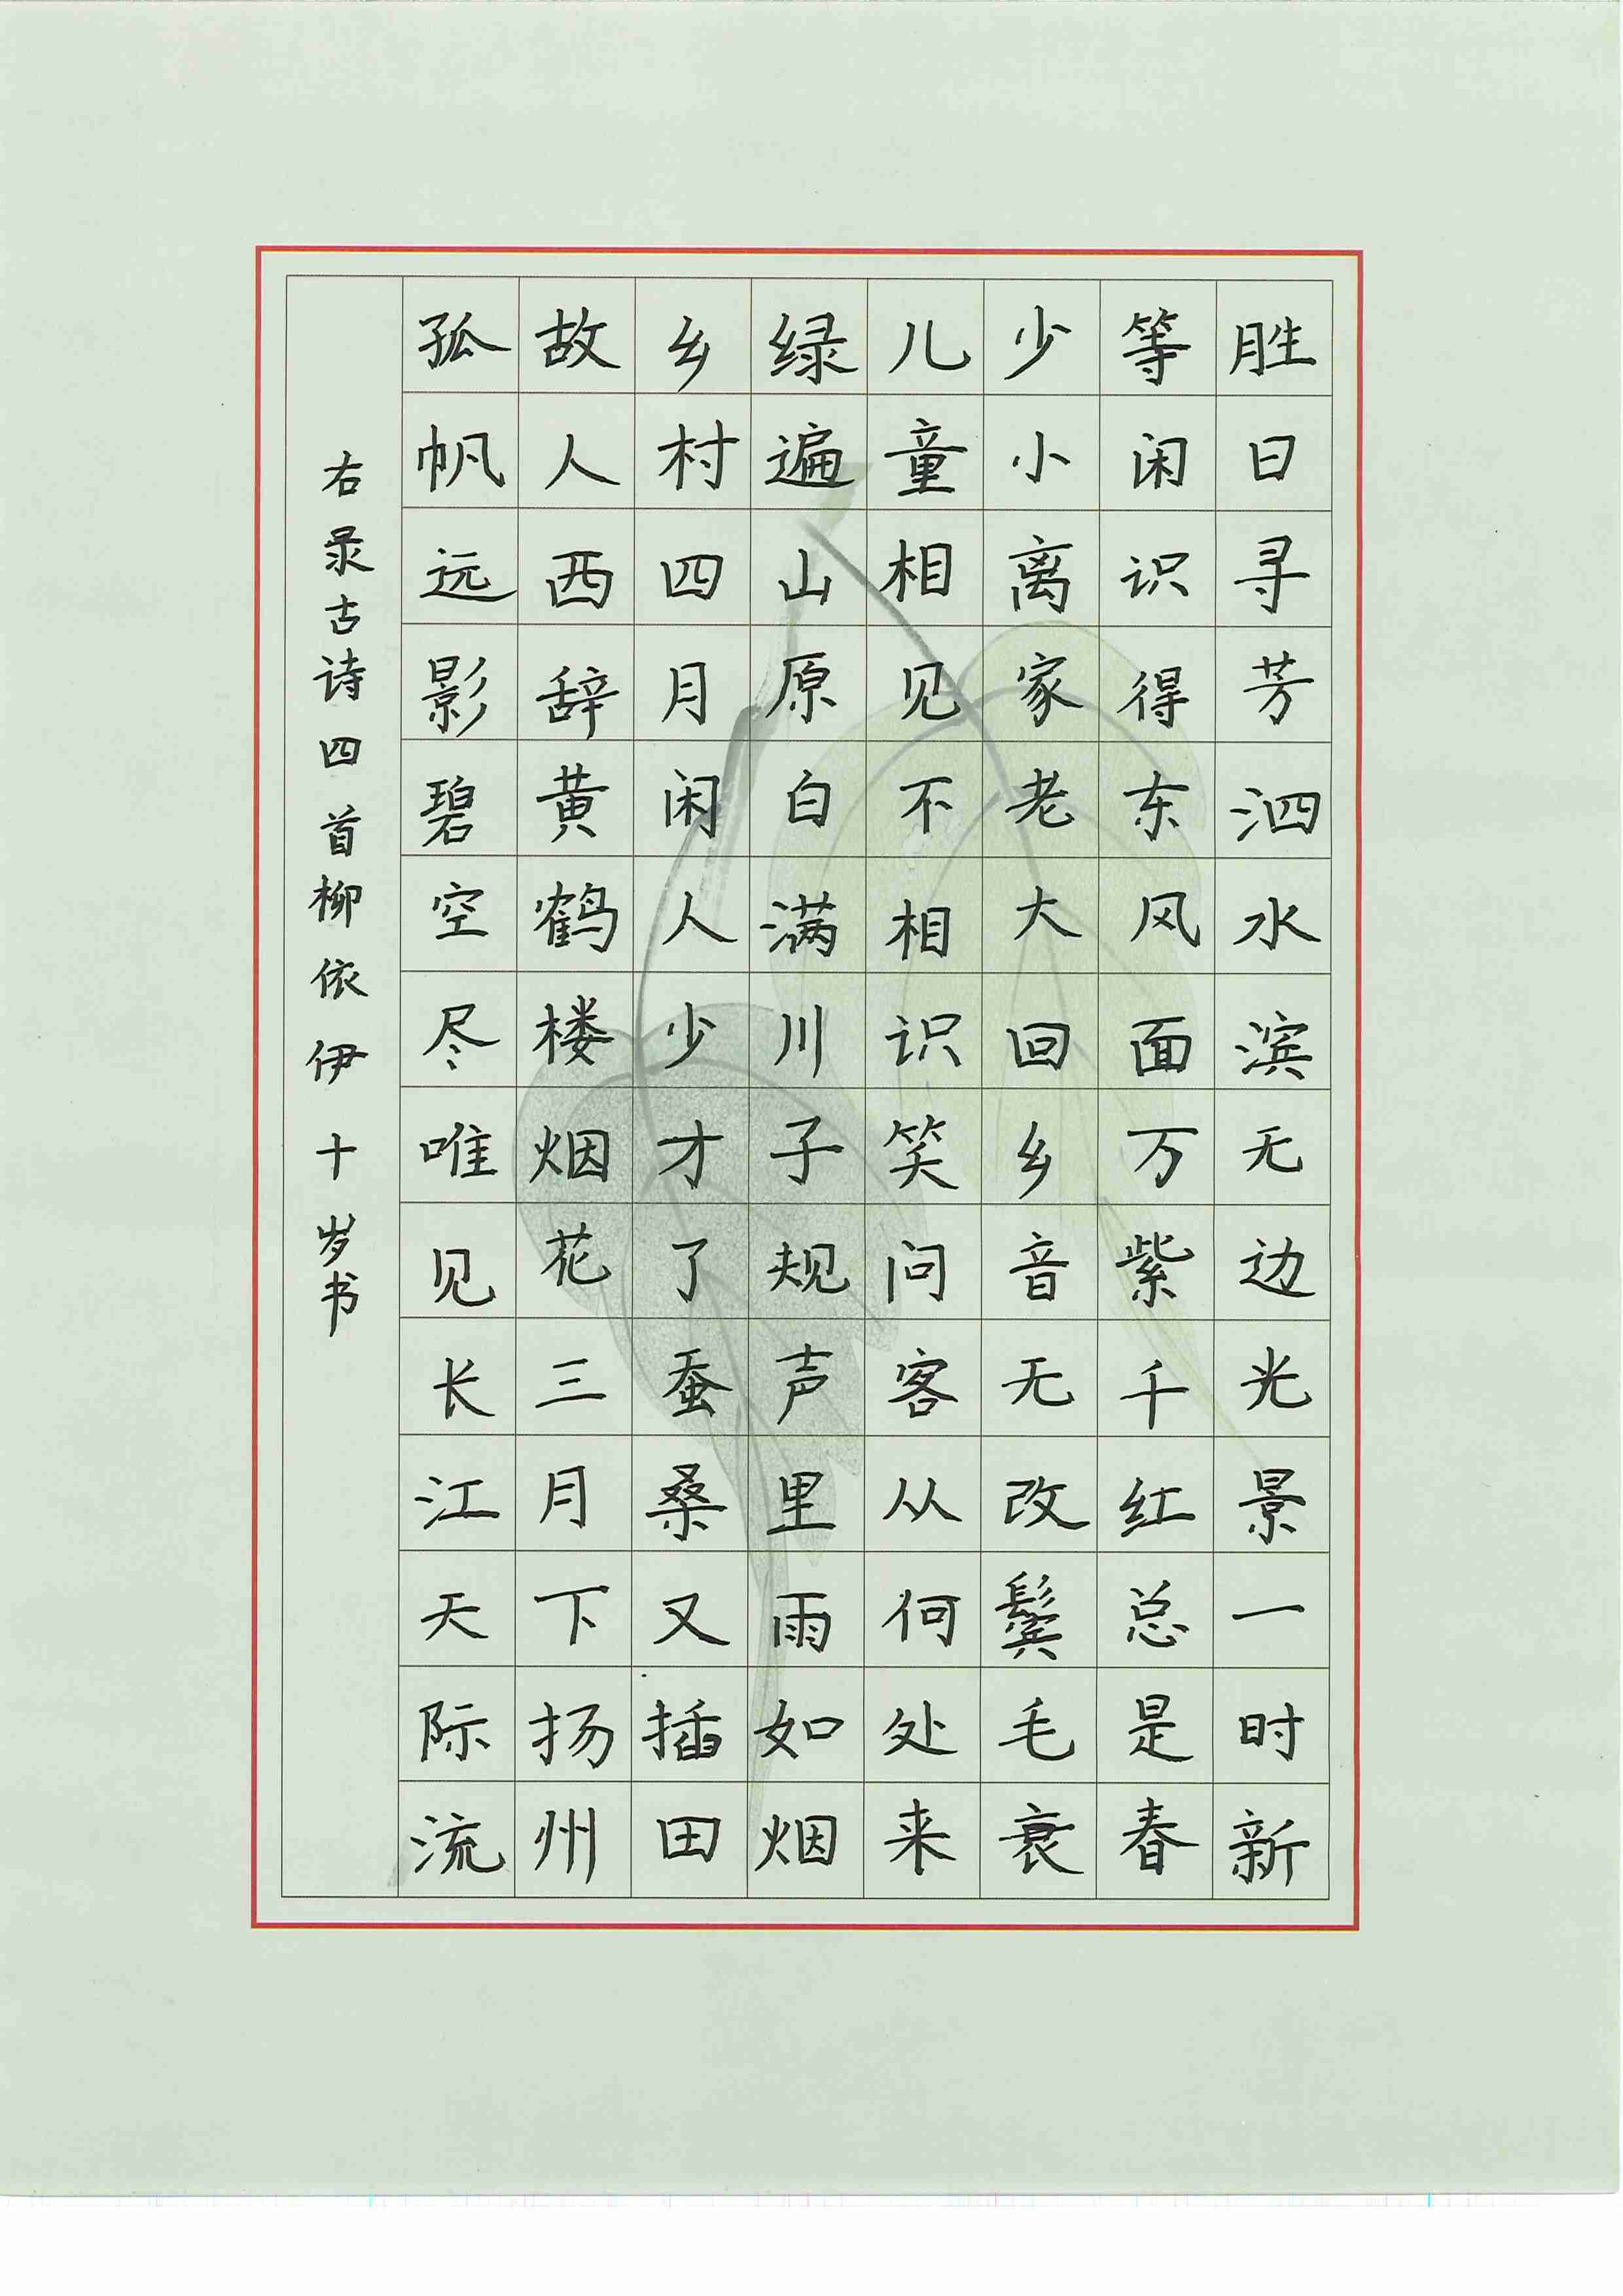 胜日寻芳泗水滨无边光景一时新
等闲识得东风面万紫千红总是春
少小离家老大回乡音无改鬓毛衰
儿童相见不相识笑问客从何处来
绿遍山原白满川子规声里雨如烟
乡村四月闲人少才了蚕桑又插田
故人西辞黄鹤楼烟花三月下扬州
孤帆远影碧空尽唯见长江天际流
右录古诗四首柳依伊十岁书